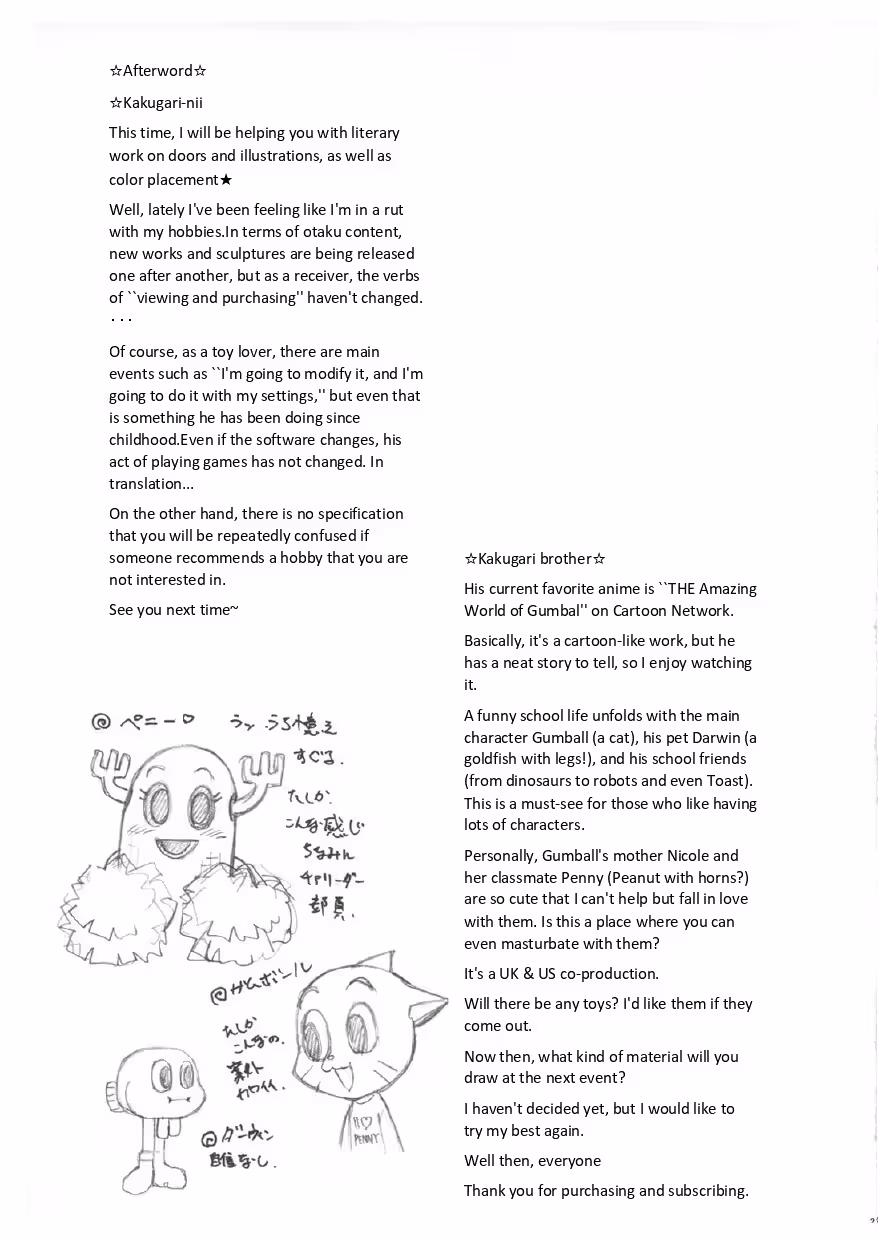 ☆Afterword☆
☆Kakugari-nii
This time, I will be helping you with literary
work on doors and illustrations, as well as
color placement★
Well, lately I've been feeling like I'm in a rut
with my hobbies.In terms of otaku content,
new works and sculptures are being released
one after another, but as a receiver, the verbs
of ``viewing and purchasing'' haven't changed.
・・・
Of course, as a toy lover, there are main
events such as ``I'm going to modify it, and I'm
going to do it with my settings,'' but even that
is something he has been doing since
childhood.Even if the software changes, his
act of playing games has not changed. In
translation...
On the other hand, there is no specification
that you will be repeatedly confused if
someone recommends a hobby that you are
not interested in.
See you next time~
☆Kakugari brother☆
His current favorite anime is ``THE Amazing
World of Gumbal'' on Cartoon Network.
Basically, it's a cartoon-like work, but he
has a neat story to tell, so I enjoy watching
it.
A funny school life unfolds with the main
character Gumball (a cat), his pet Darwin (a
goldfish with legs!), and his school friends
(from dinosaurs to robots and even Toast).
This is a must-see for those who like having
lots of characters.
Personally, Gumball's mother Nicole and
her classmate Penny (Peanut with horns?)
are so cute that I can't help but fall in love
with them. Is this a place where you can
even masturbate with them?
It's a UK & US co-production.
Will there be any toys? I'd like them if they
come out.
Now then, what kind of material will you
draw at the next event?
I haven't decided yet, but I would like to
try my best again.
Well then, everyone
Thank you for purchasing and subscribing.
@ペニー♡
すぎる.
たしか
こんな感じ
ちなみに
チアリーダー
部員.
@ガムボール
たしか
こんなの.
案外
カワイイ.
I♡
PENNY
@ダーウィン
自信なし.